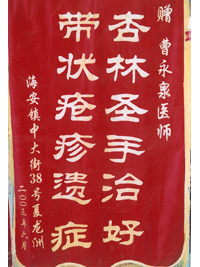 赠 曹永泉医师
杏林圣手治好
带状疱疹遗症
海安镇中大街38号夏龙洲
二00三年六月